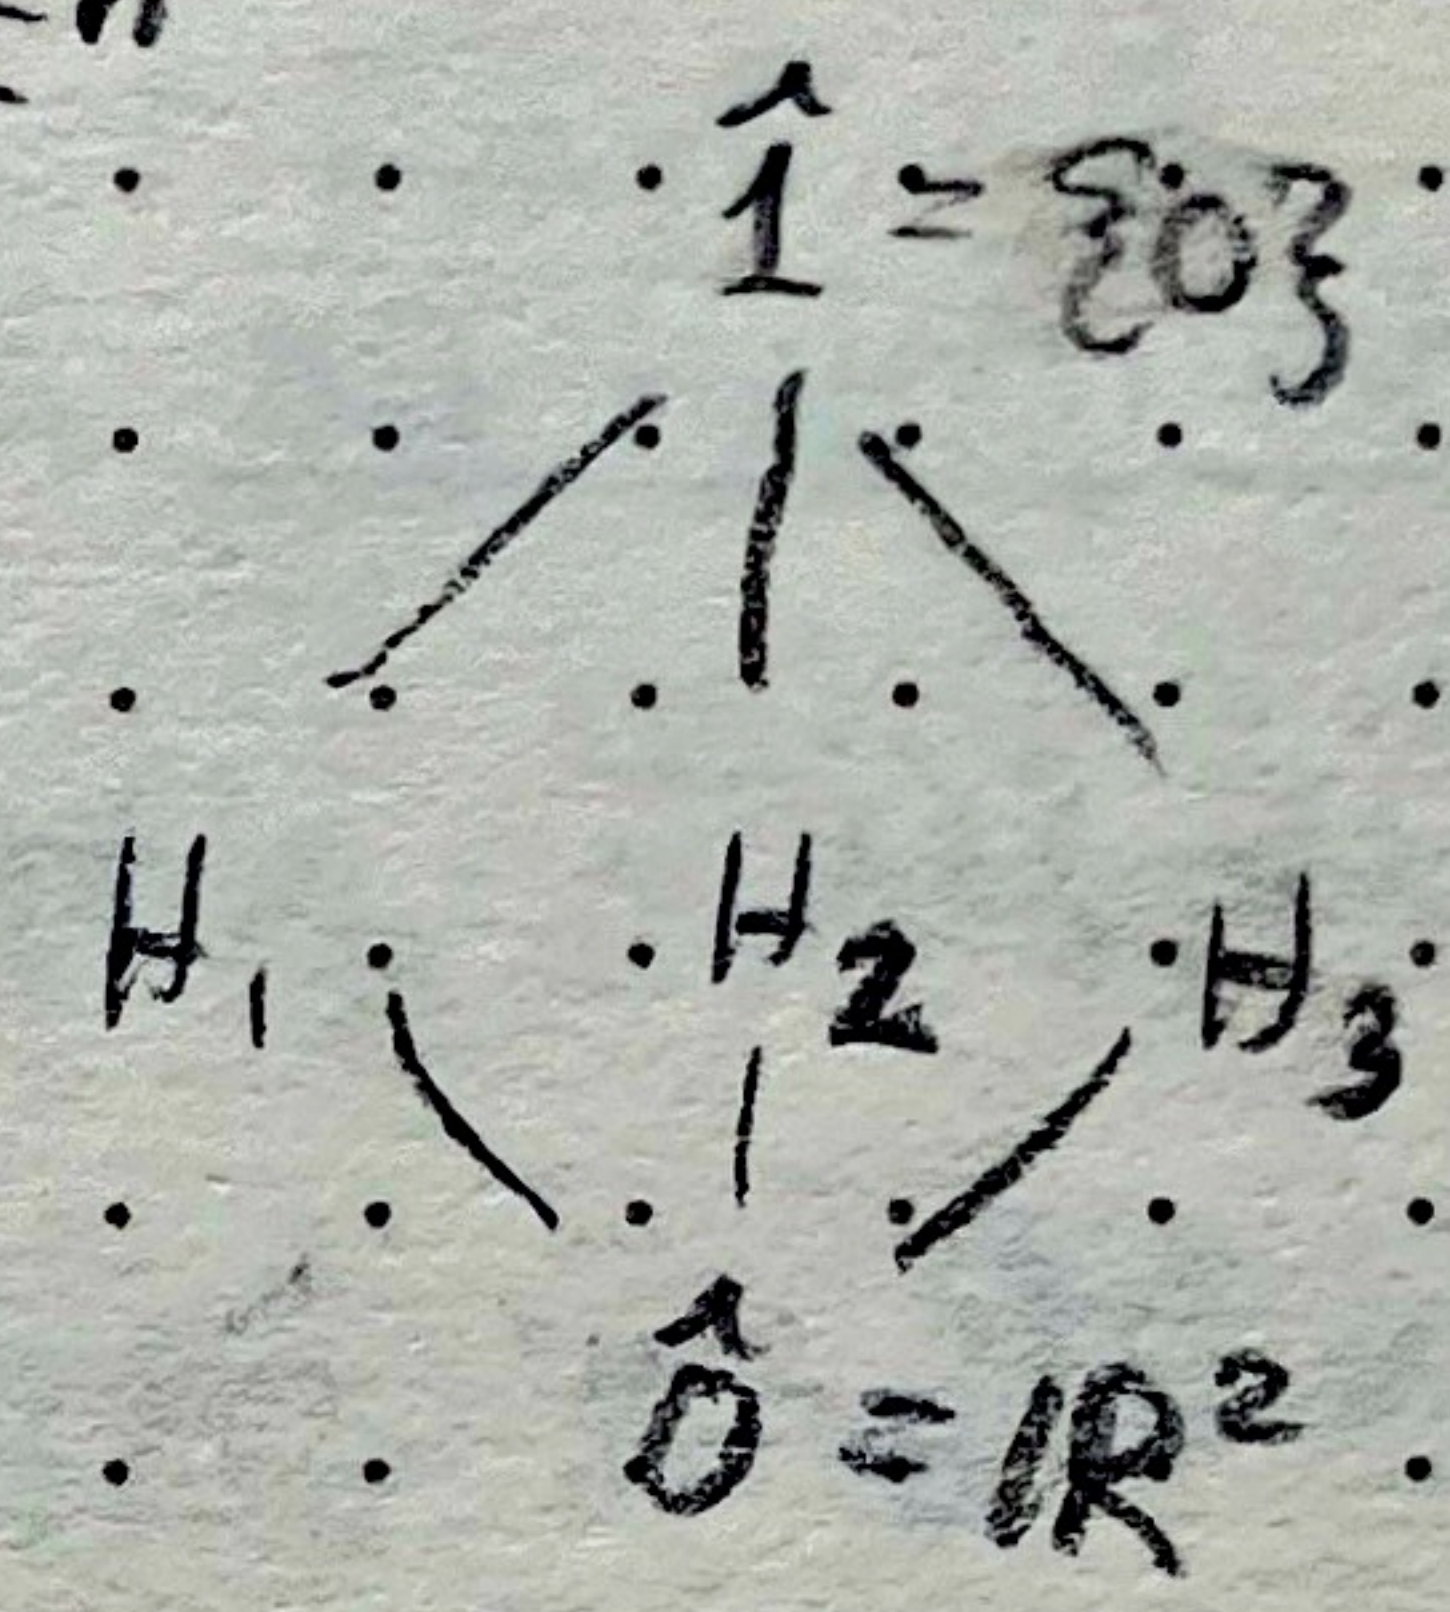 =n
1̂ = {0}
H₁ H₂ H₃
0̂ = ℝ²